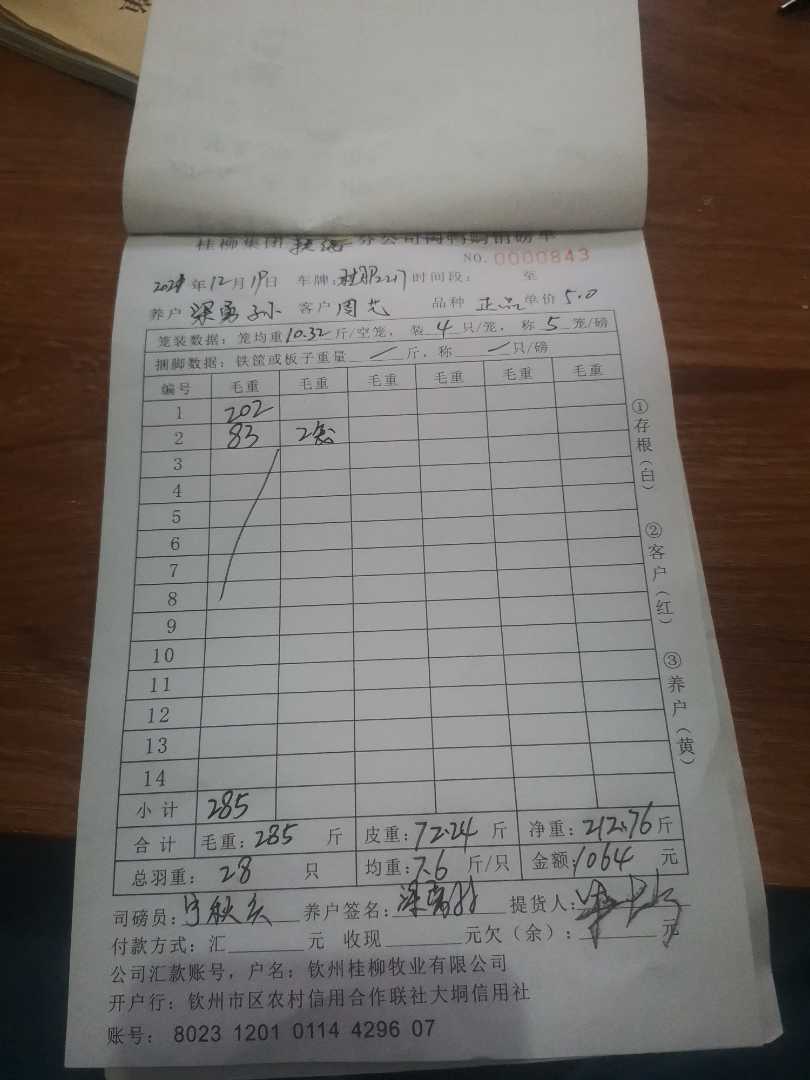 桂柳集团 分公司肉鸭购销磅单
NO. 0000843
年12月19日 车牌: 时间段: 至
养户 梁勇 客户 周 品种 正品 单价 5.0
笼装数据: 笼均重 10.32 斤/空笼, 装 4 只/笼, 称 5 笼/磅
捆脚数据: 铁筐或板子重量 / 斤, 称 / 只/磅
编号 毛重 毛重 毛重 毛重 毛重 毛重
1 202
2 83 2笼
3
4
5
6
7
8
9
10
11
12
13
14
小计 285
合计 毛重: 285 斤 皮重: 72.24 斤 净重: 212.76 斤
总羽重: 28 只 均重: 7.6 斤/只 金额: 1064 元
司磅员: 养户签名: 提货人:
付款方式: 汇 元 收现 元欠(余): 元
公司汇款账号, 户名: 钦州桂柳牧业有限公司
开户行: 钦州市区农村信用合作联社大垌信用社
账号: 8023 1201 0114 4296 07
①存根(白)
②客户(红)
③养户(黄)